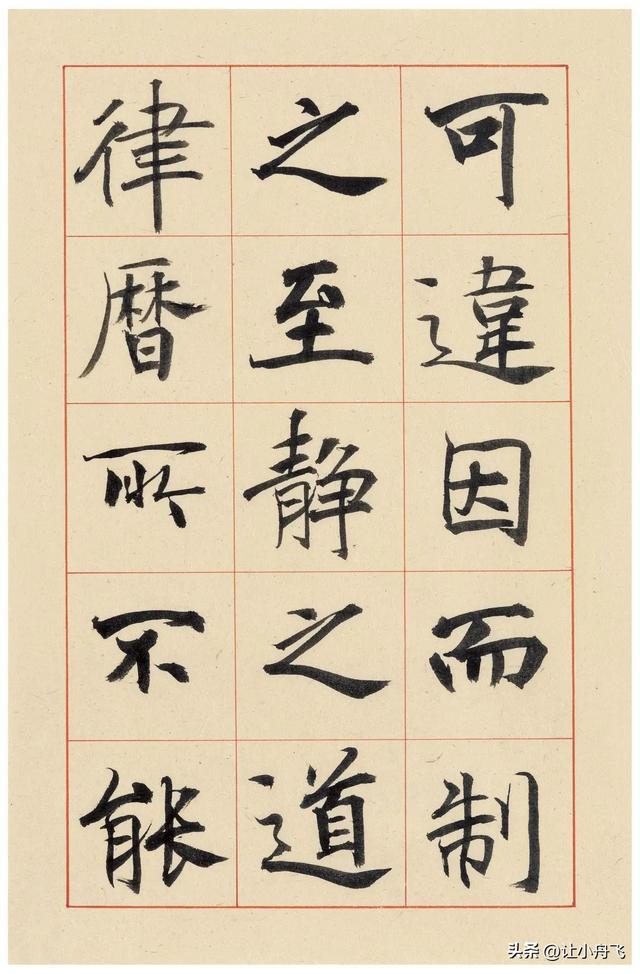 可違因而制
之至静之道
律曆所不能
头条 @让小舟飞